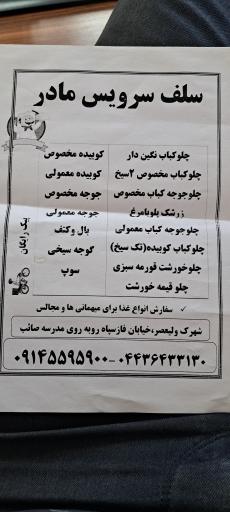 سلف سرویس مادر
چلوکباب نگین دار
چلوکباب مخصوص ۲سیخ
چلوجوجه کباب مخصوص
زرشک پلوبامرغ
چلوجوجه کباب معمولی
چلوکباب کوبیده(تک سیخ)
چلوخورشت قورمه سبزی
چلو قیمه خورشت
کوبیده مخصوص
کوبیده معمولی
جوجه مخصوص
جوجه معمولی
بال وکتف
گوجه سیخی
سوپ
پیک رایگان
✓ سفارش انواع غذا برای میهمانی ها و مجالس
شهرک ولیعصر،خیابان فازسیاه روبه روی مدرسه صائب
۰۹۱۴۵۵۹۵۹۰۰-۰۴۴۳۶۴۳۳۱۳۰